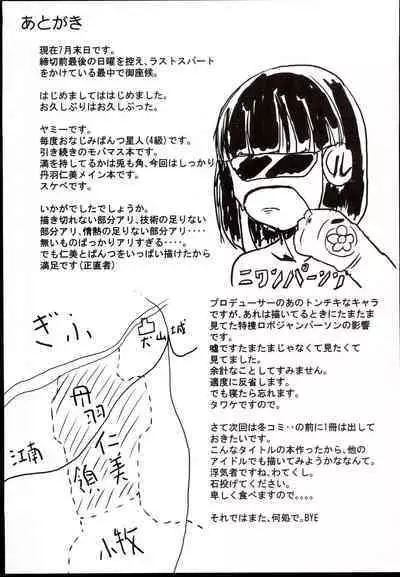 あとがき
現在7月末日です。
締切前最後の日曜を控え、ラストスパート
をかけている最中で御座候。
はじめましてははじめました。
お久しぶりはお久しぶった。
ヤミーです。
毎度おなじみぱんつ星人(4級)です。
引き続きのモバマス本です。
満を持してるかは兎も角、今回はしっかり
丹羽仁美メイン本です。
スケベです。
いかがでしたでしょうか。
描き切れない部分アリ、技術の足りない
部分アリ、情熱の足りない部分アリ・・・・
無いものばっかりアリすぎる・・・・。
でも仁美とぱんつをいっぱい描けたから
満足です(正直者)
ル
ニワンパーソング
プロデューサーのあのトンチキなキャラ
ですが、あれは描いてるときにたまたま
見てた特捜ロボジャンパーソンの影響
です。
嘘ですたまたまじゃなくて見たくて
見てました。
余計なことしてすみません。
適度に反省します。
でも寝たら忘れます。
タワケですので。
さて次回は冬コミ・・の前に1冊は出して
おきたいです。
こんなタイトルの本作ったから、他の
アイドルでも描いてみようかななんて。
浮気者ですね、わてくし。
石投げてください。
卑しく食べますので。。。。
それではまた、何処で。BYE
ぎふ
犬山城
丹羽仁美領
江南
小牧